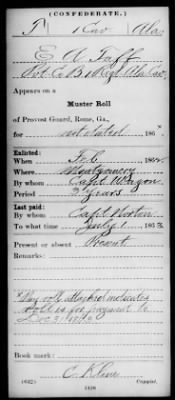 (CONFEDERATE.)
T 1 Cav Ala.
E A Taff
Pvt. Co. B 1 Regt. Ala Cav.
Appears on a
Muster Roll
of Provost Guard, Rome, Ga.,
for not dated , 186 *
Enlisted:
When Feb , 186
Where Montgomery
By whom Capt
Period 3 Years
Last paid:
By whom Capt
To what time July 1 , 186
Present or absent Present
Remarks:
*Pay roll attached indicates
roll is for payment to
Dec 31, 1862
Book mark:
(642) Copyist.